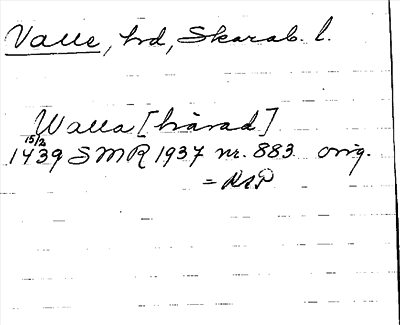 Valle, hd, Skarab. l.
Walla [häradh]
15/2
1439 SMR 1937 nr. 883 orig.
= RAP